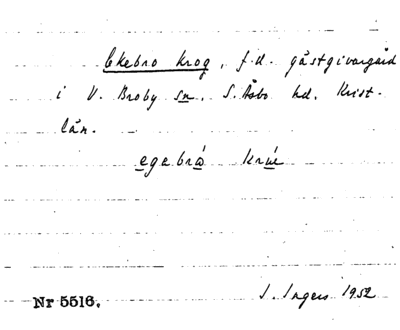 Ekebro krog, f.d. gästgivargård
i V. Broby sn. S. Åsbo hd. Krist-
län.
egebrω kruɛ
Nr 5516.
I. Ingers 1952